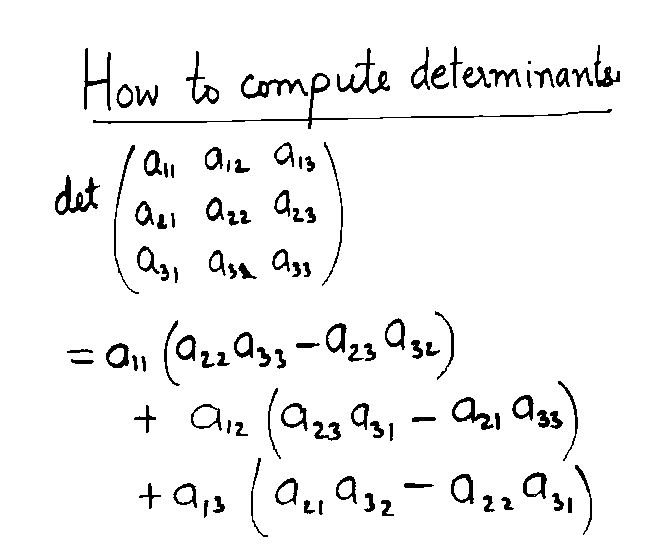 How to compute determinants
det ( a₁₁ a₁₂ a₁₃
a₂₁ a₂₂ a₂₃
a₃₁ a₃₂ a₃₃ )
= a₁₁ (a₂₂ a₃₃ − a₂₃ a₃₂)
+ a₁₂ (a₂₃ a₃₁ − a₂₁ a₃₃)
+ a₁₃ (a₂₁ a₃₂ − a₂₂ a₃₁)